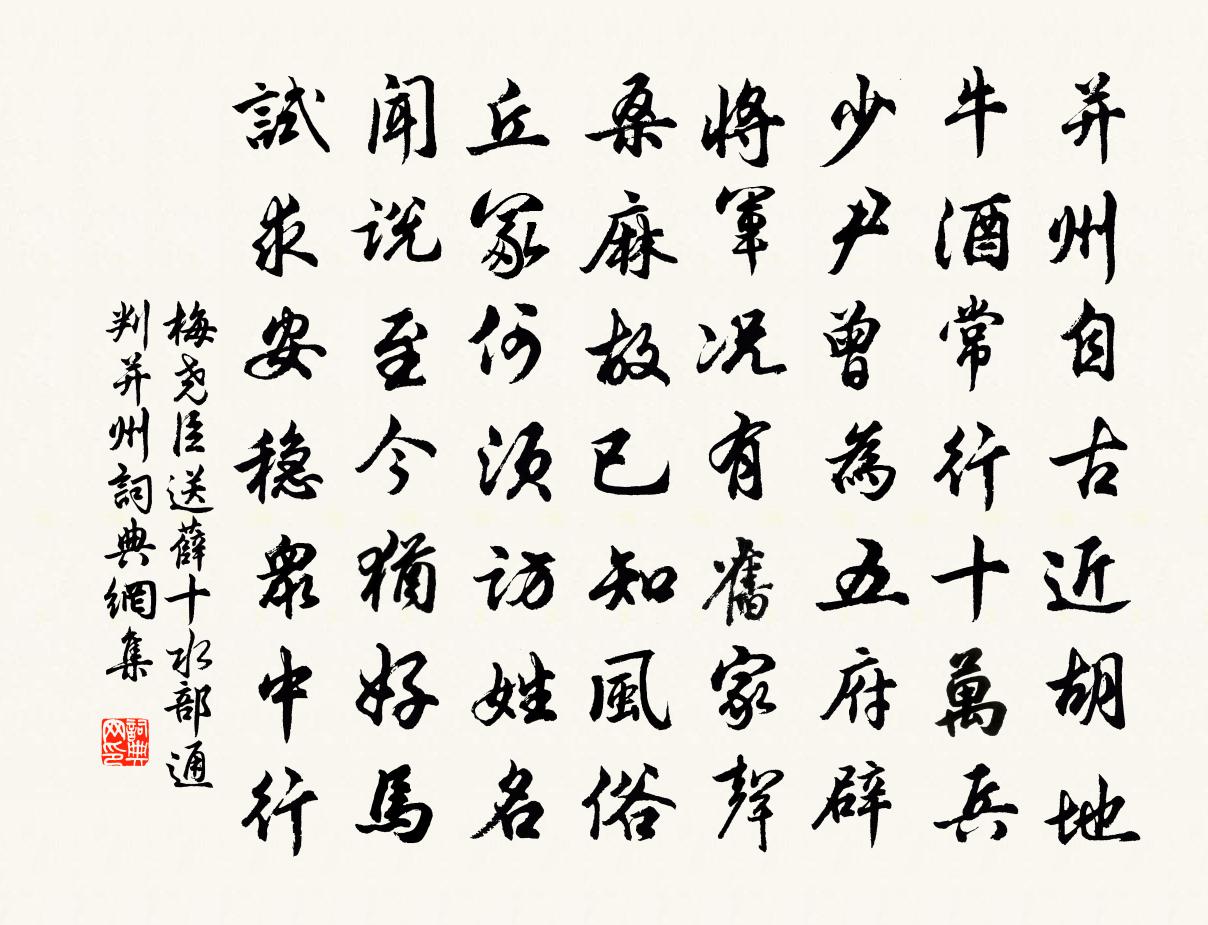 并州自古近胡地
牛酒常行十萬兵
少尹曾為五府辟
將軍況有舊家聲
桑麻故已知風俗
丘冢何須訪姓名
聞説至今猶好馬
試求安穩衆中行
梅堯臣送薛十水部通
判并州詞典網集
詞典网印